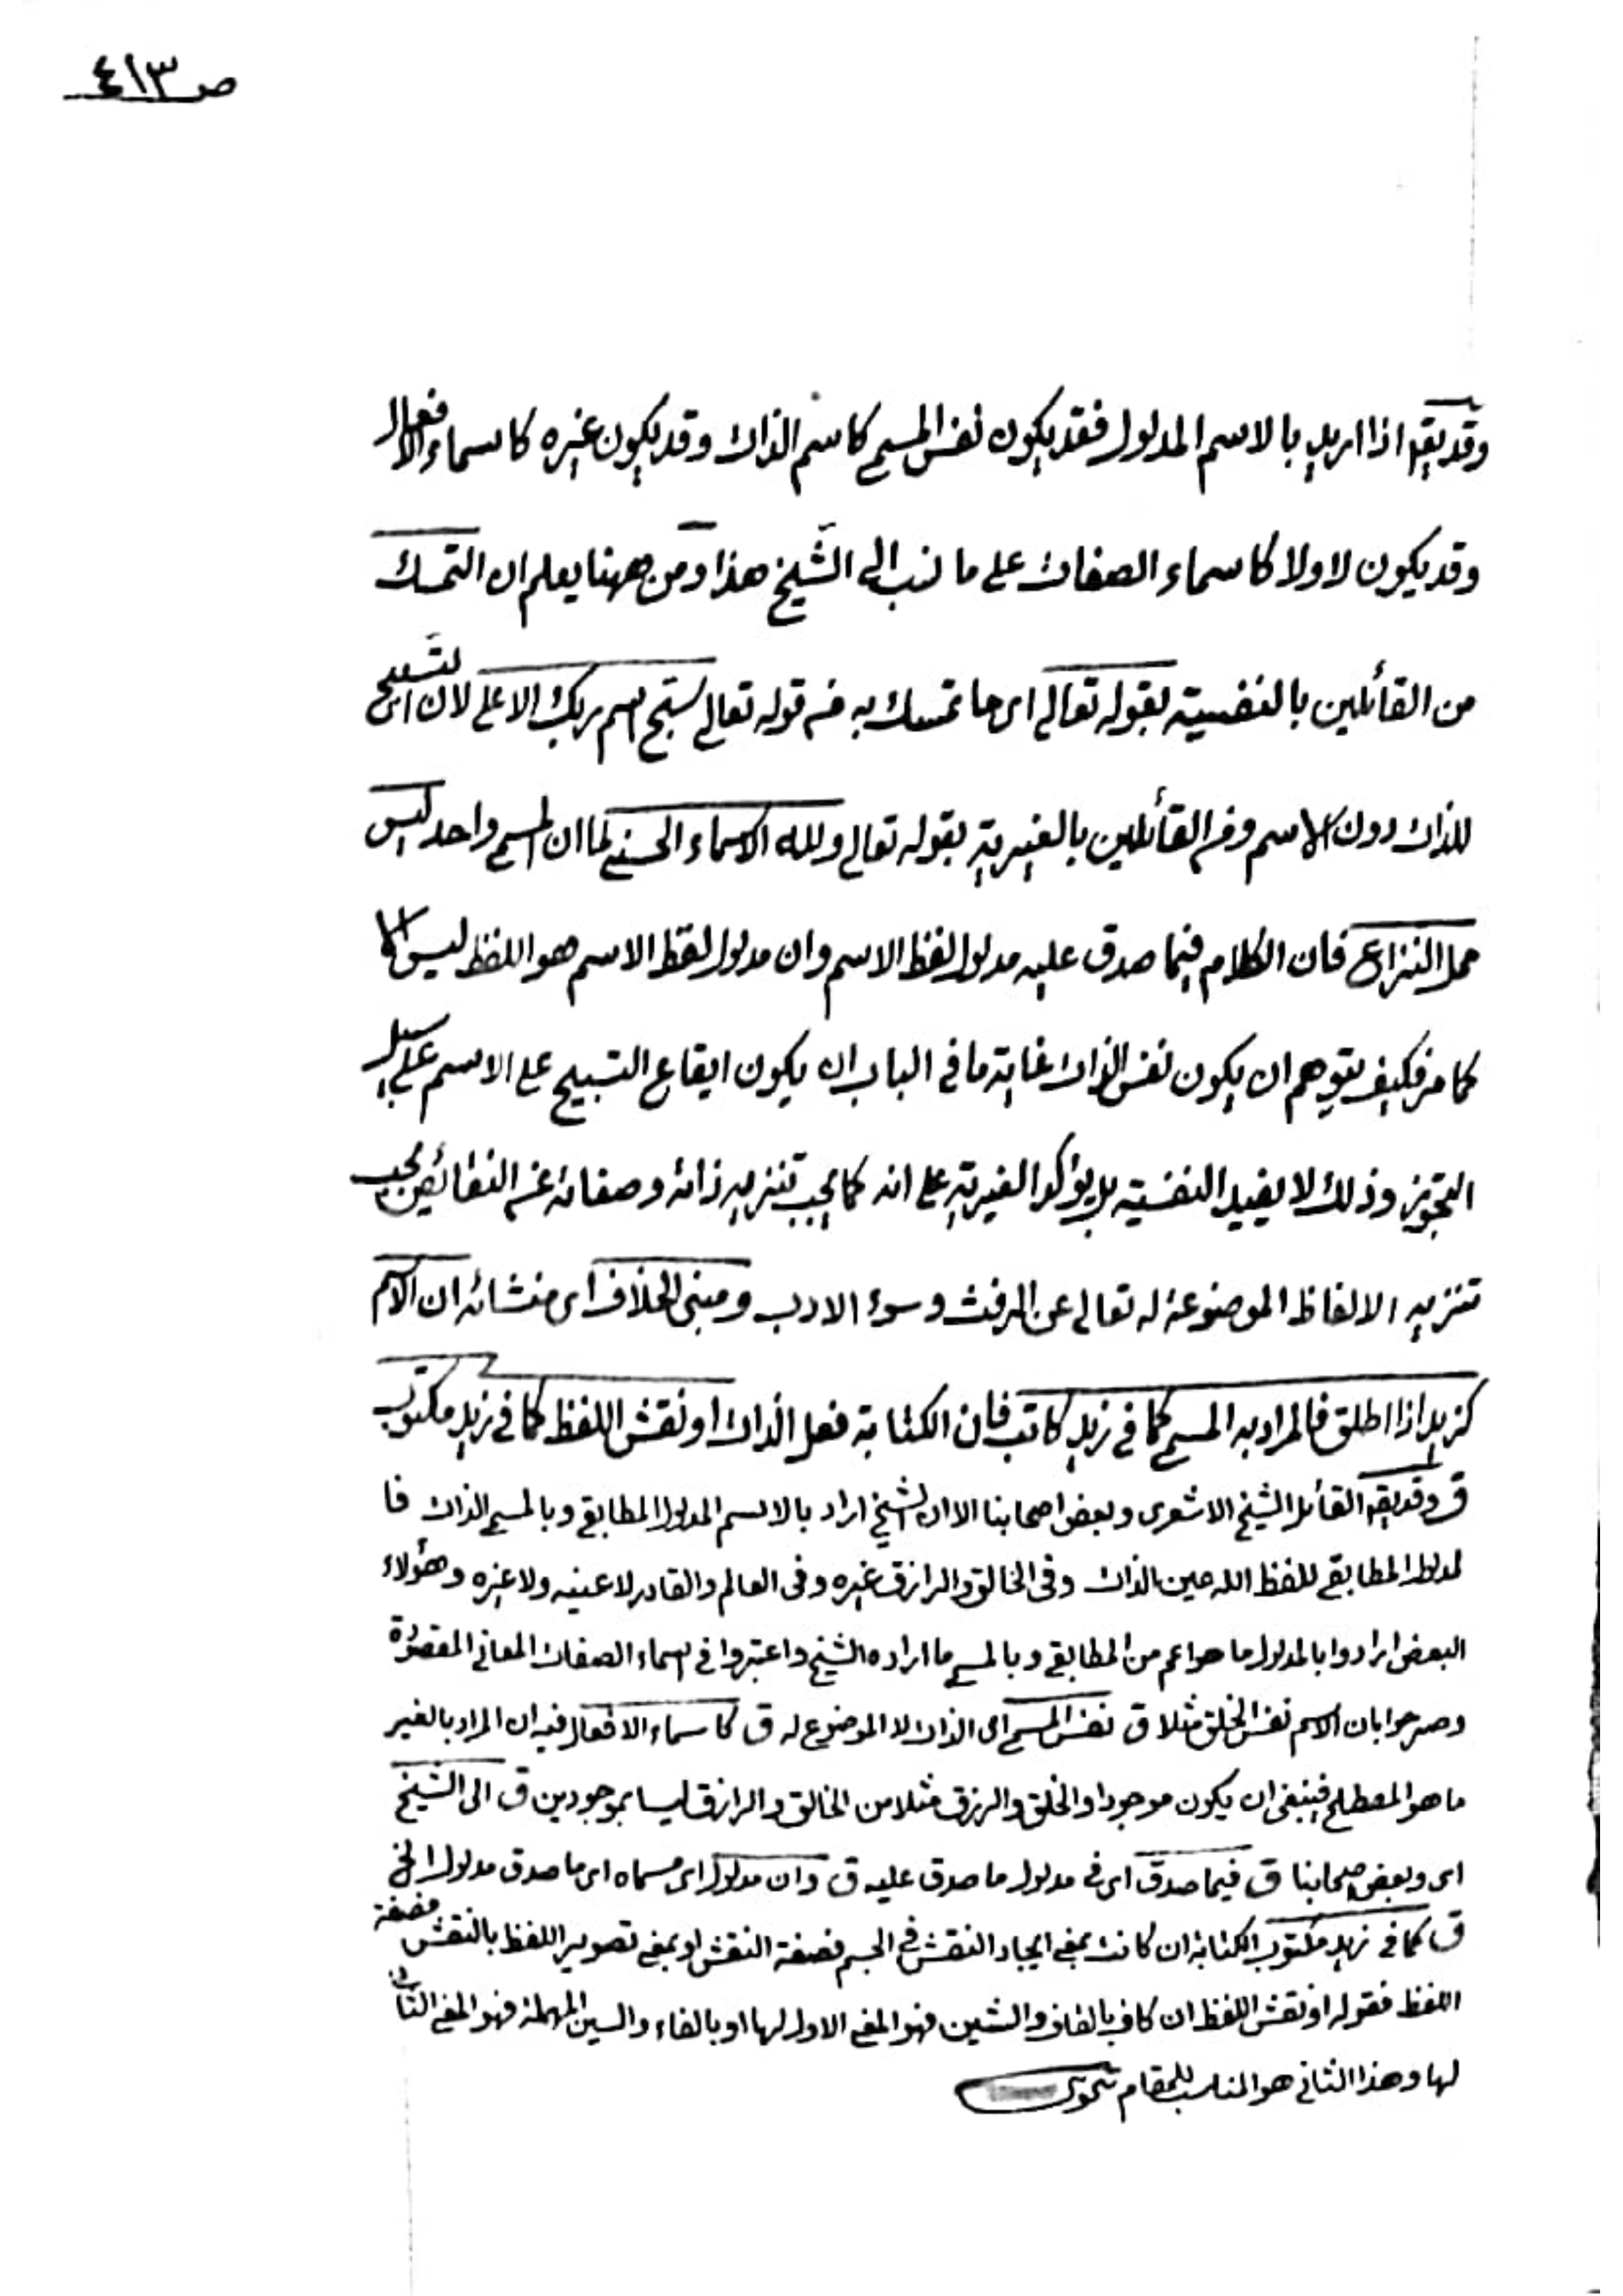 ص ٤١٣
وقد يقر اذا اريد بالاسم المدلول فقد يكون نفس المسمى كاسم الذات وقد يكون غيره كاسماء الافعال
وقد يكون لا ولا كاسماء الصفات على ما نسب الى الشيخ هذا ومن ههنا يعلم ان التمسك
من القائلين بالنفسية بقوله تعالى اى ما تمسك به من قوله تعالى سبح اسم ربك الاعلى لان التسبيح
للذات دون الاسم ومن القائلين بالغيرية بقوله تعالى ولله الاسماء الحسنى لما ان المسمى واحد ليس
محل النزاع فان الكلام فيما صدق عليه مدلول لفظ الاسم وان مدلول لفظ الاسم هو اللفظ ليس الا
كما مر فكيف يتوهم ان يكون نفس الذات غاية ما فى الباب ان يكون ايقاع التسبيح على الاسم على سبيل
التجوز وذلك لا يفيد النفسية بل يؤكد الغيرية على انه كما يجب تنزيه ذاته وصفاته عن النقائص يجب
تنزيه الالفاظ الموضوعة له تعالى عن الرفث وسوء الادب ومبنى الخلاف اى منشائه ان الاسم
كزيد اذا اطلق فالمراد به المسمى كما فى زيد كاتب فان الكتابة فعل الذات او نقش اللفظ كما فى زيد مكتوب
ق وقد يقر القائل الشيخ الاشعرى وبعض اصحابنا الا ان الشيخ اراد بالاسم المدلول المطابقى وبالمسمى الذات فا
لمدلول المطابقى للفظ الله عين الذات وفى الخالق والرازق غيره وفى العالم والقادر لا عينه ولا غيره وهؤلاء
البعض ارادوا بالمدلول ما هو اعم من المطابقى وبالمسمى ما اراده الشيخ واعتبروا فى اسماء الصفات المعانى المقصودة
وصرحوا بان الاسم نفس الخلق مثلا ق نفس المسمى اى الذات لا الموضوع له ق كاسماء الافعال فيه ان المراد بالغير
ما هو المصطلح فينبغى ان يكون موجودا والخلق والرزق مثلا من الخالق والرازق ليسا بموجودين ق الى الشيخ
اى وبعض اصحابنا ق فيما صدق اى فى مدلول ما صدق عليه ق وان مدلول اى مسماه اى ما صدق مدلول الخ
ق كما فى زيد مكتوب الكتابة ان كانت بمعنى ايجاد النقش فى الجسم فصفة النقش او بمعنى تصوير اللفظ بالنقش فصفة
اللفظ فقوله او نقش اللفظ ان كان بالقاف والشين فهو المعنى الاول لها او بالفاء والسين المهملة فهو المعنى الثانى
لها وهذا الثانى هو المناسب للمقام